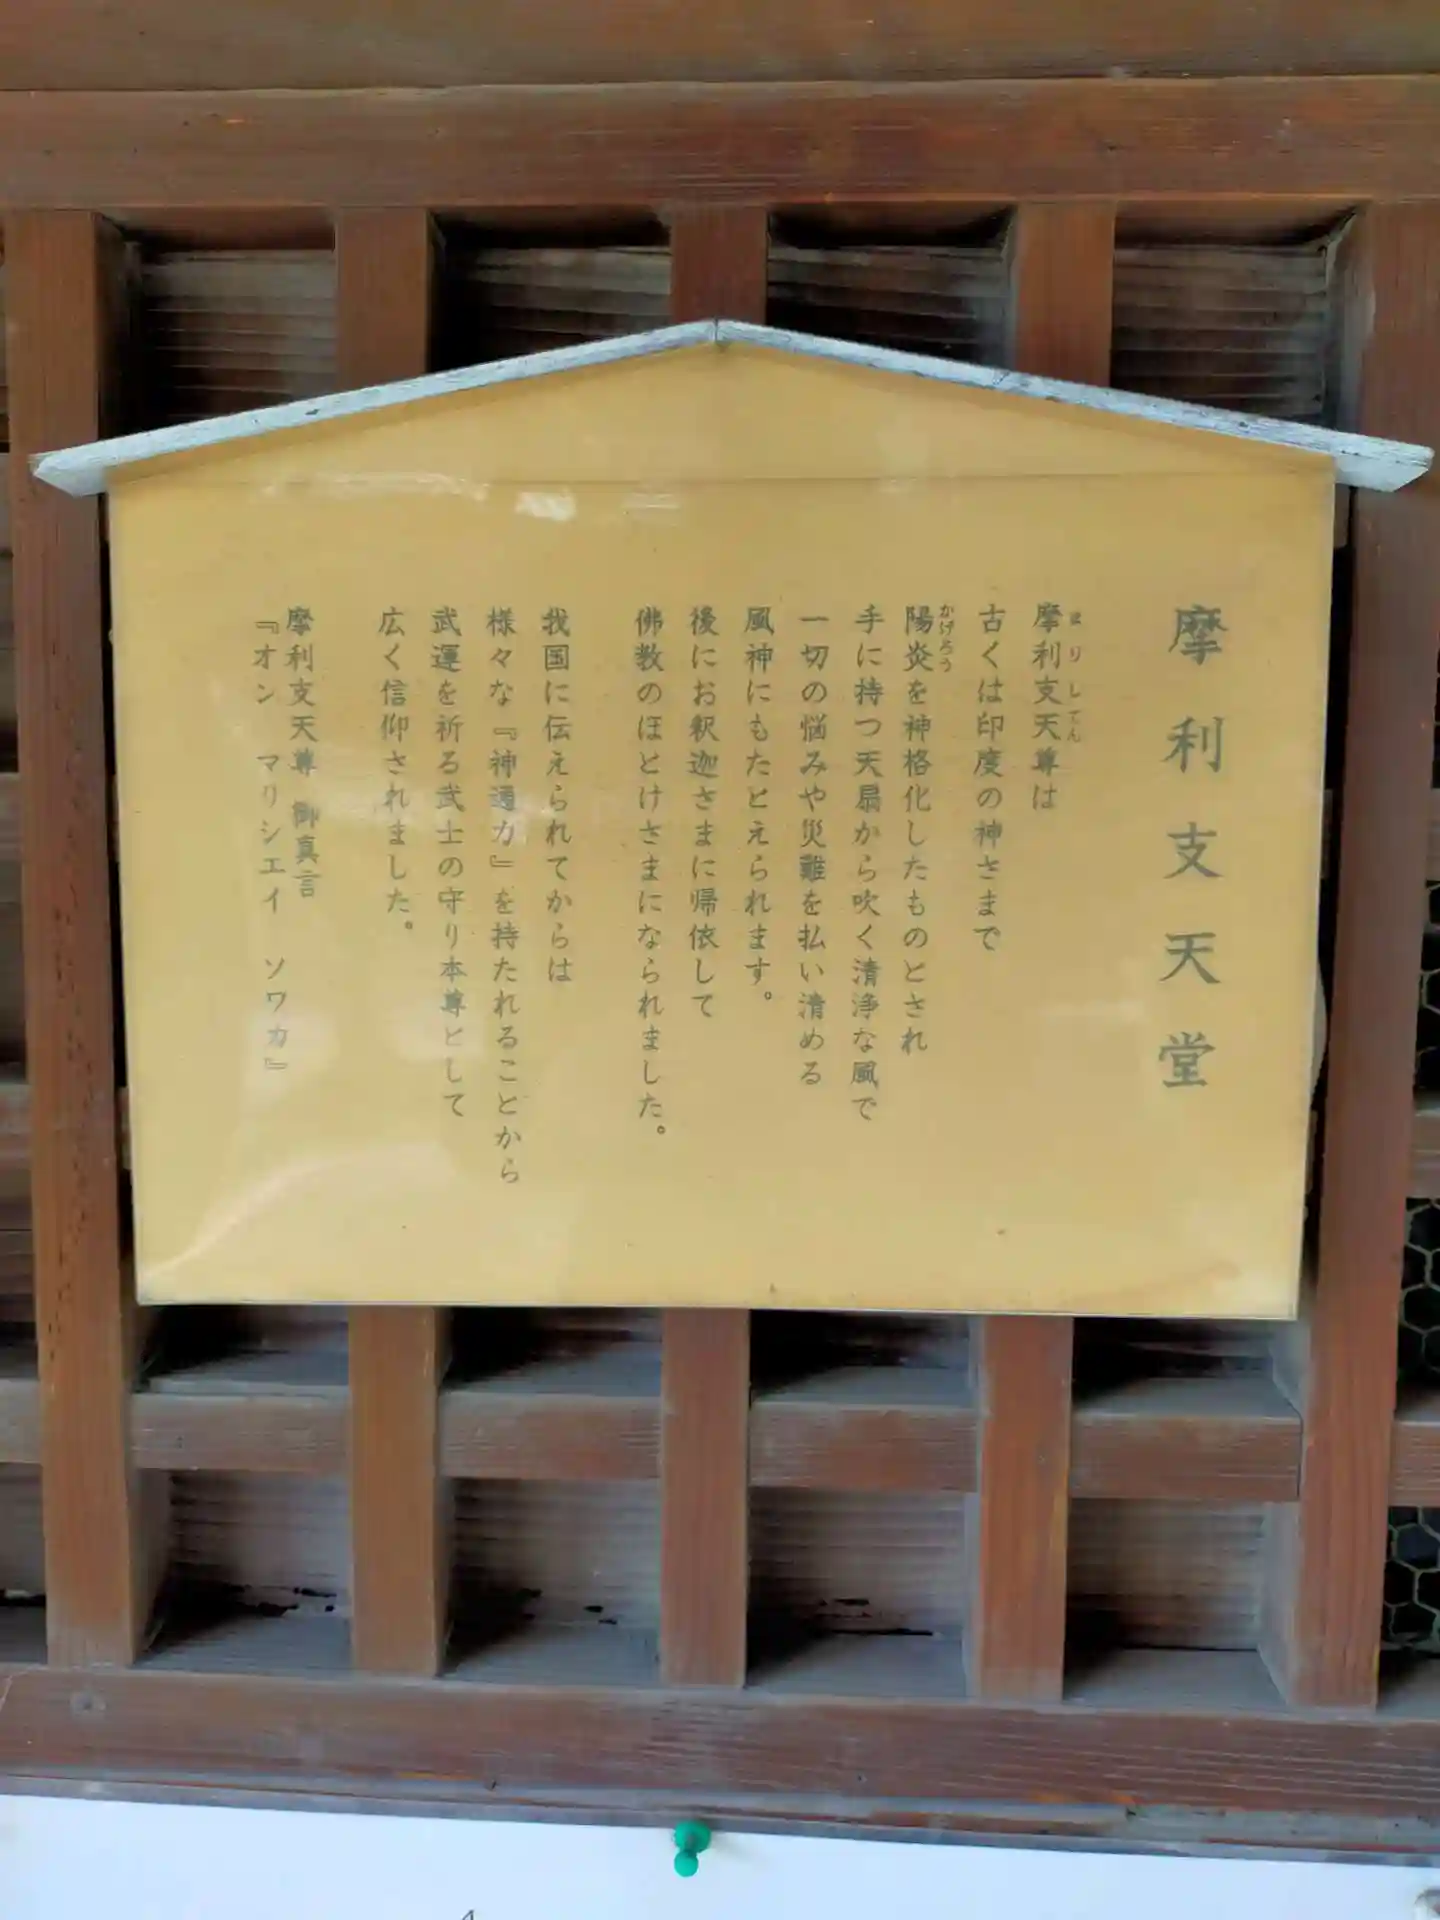 摩利支天堂
摩利支天尊は
まりしてん
古くは印度の神さまで
陽炎を神格化したものとされ
かげろう
手に持つ天扇から吹く清浄な風で
一切の悩みや災難を払い清める
風神にもたとえられます。
後にお釈迦さまに帰依して
佛教のほとけさまになられました。
我国に伝えられてからは
様々な『神通力』を持たれることから
武運を祈る武士の守り本尊として
広く信仰されました。
摩利支天尊 御真言
『オン マリシエイ ソワカ』